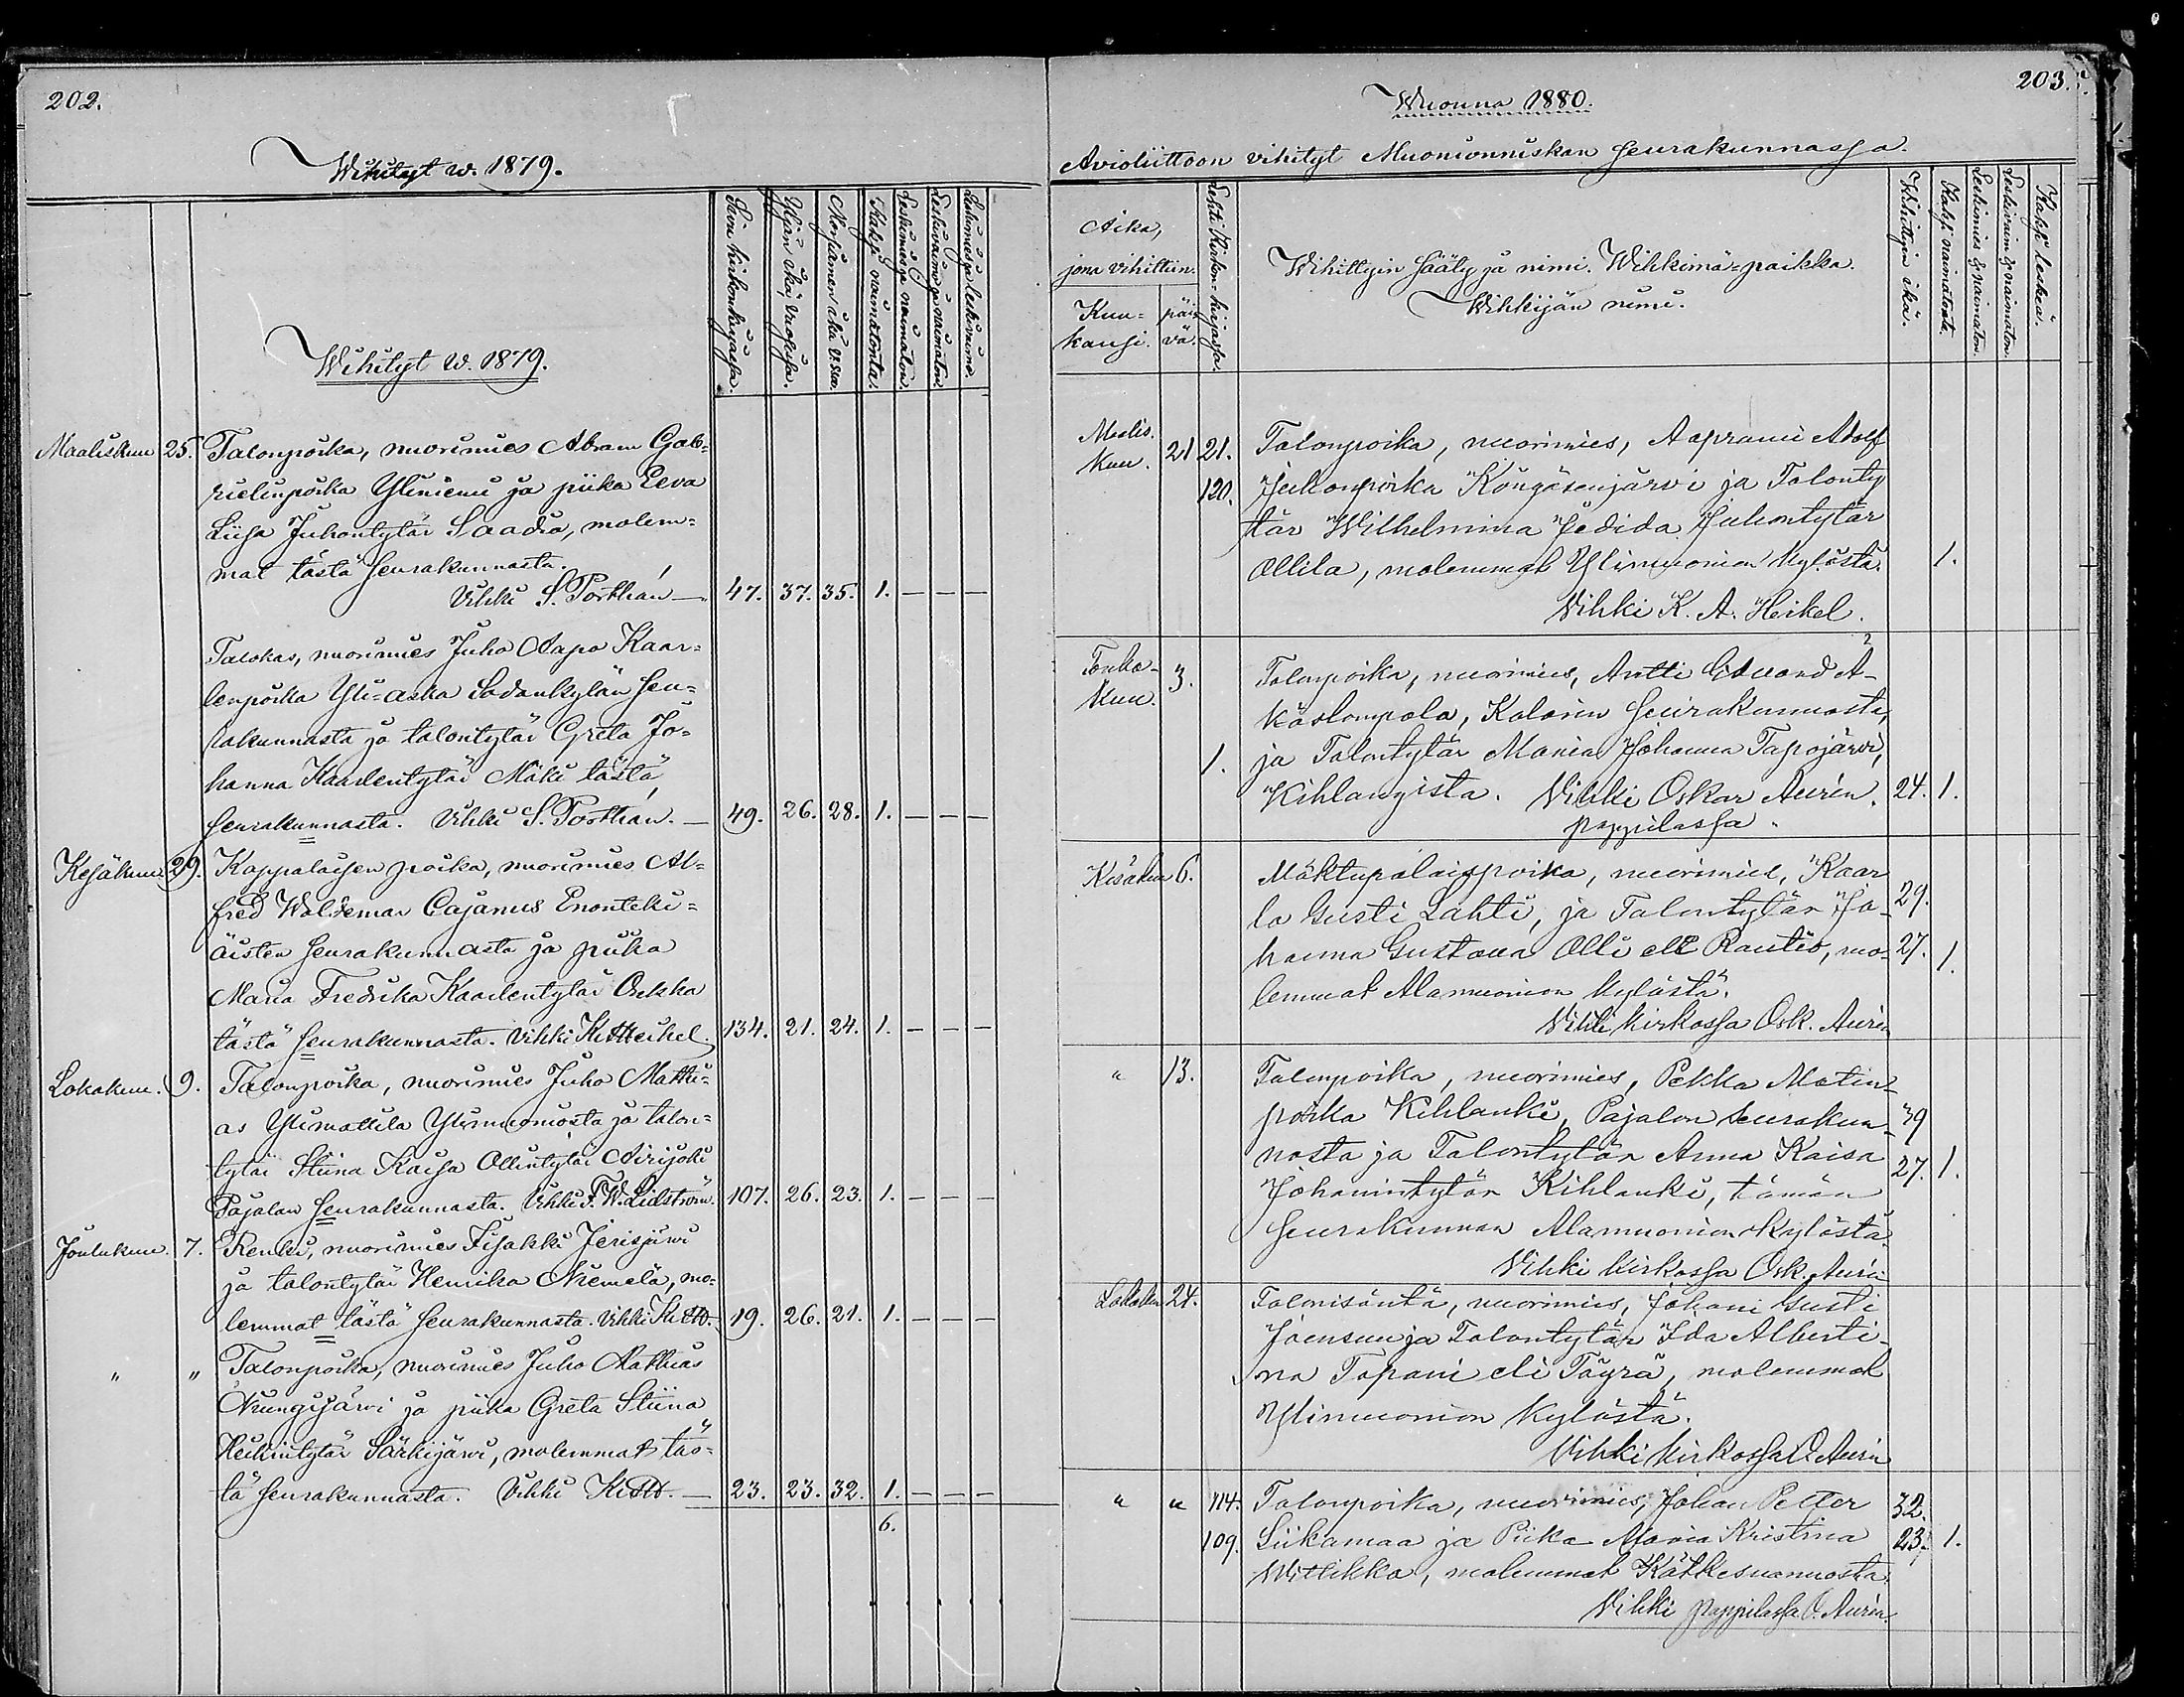 202.
Wihityt w. 1879.
Sivu kirkonkirjassa.
Yljän ikä, vuosissa.
Morsiamen ikä v:ssa.
Kaksi naimatonta.
Leskimies ja naimaton.
Leskivaimo ja naimaton.
Leskimies ja leskivaimo.
Wihityt w. 1879.
Maaliskuu 25. Talonpoika, nuorimies Abram Gab-
rielinpoika Yliniemi ja piika Eeva
Liisa Juhontytär Saadio, molem-
mat tästä seurakunnasta.
Vihki S. Porthán — 47. 37. 35. 1. — — —
Talokas, nuorimies Juho Aapo Kaar-
lenpoika Yli-aska Sodankylän seu-
rakunnasta ja talontytär Greta Jo-
hanna Kaarlentytär Mäki tästä
seurakunnasta. Vihki S. Porthán. — 49. 26. 28. 1. — — —
Kesäkuu 29. Kappalaisen poika, nuorimies Al-
fred Waldemar Cajanus Enonteki-
äisten seurakunnasta ja piika
Maria Fredrika Kaarlentytär Orkka
tästä seurakunnasta. Vihki KAHeikel. 134. 21. 24. 1. — — —
Lokakuu. 9. Talonpoika, nuorimies Juho Matthi-
as Ylimattila Ylimuoniosta ja talon-
tytär Stiina Kaisa Ollintytär Airijoki
Pajalan seurakunnasta. Vihki F. W. Lidström. 107. 26. 23. 1. — — —
Joulukuu. 7. Renki, nuorimies Fisakki Jerisjärwi
ja talontytär Henrika Niemelä, mo-
lemmat tästä seurakunnasta. Vihki KAH. 19. 26. 21. 1. — — —
" " Talonpoika, nuorimies Juho Mathias
Kiungisjärvi ja piika Greta Stiina
Heikintytär Särkijärwi, molemmat täs-
tä seurakunnasta. Vihki KAH. — 23. 23. 32. 1. — — —
6.
203.
Wuonna 1880.
Avioliittoon vihityt Muonionniskan seurakunnassa.
Aika,
jona vihittiin.
Kuu-
kausi.
päi-
vä.
Lehti Kirkon-kirjassa.
Wihittyin sääty ja nimi. Wihkimä-paikka.
Wihkijän nimi.
Wihittyin ikä.
Kaksi naimatonta.
Leskimies & naimaton.
Leskivaim. & naimaton.
Kaksi leskeä.
Maalis.
kuu. 21 21. Talonpoika, nuorimies, Aaprami Adolf
120. Juhonpoika Köngäsenjärvi ja Talonty
tär Wilhelmina Jedida Juhontytär
Ollila, molemmat Ylimuonion kylästä. 1.
Vihki K. A. Heikel.
Touko-
kuu. 3. Talonpoika, nuorimies, Antti Eduard A-
käslompola, Kolarin seurakunnasta,
1. ja Talontytär Maria Johanna Tapojärvi,
Kihlangista. Vihki Oskar Aurén. 24. 1.
pappilassa.
Kesäkuu 6. Mäktupalaispoika, nuorimies, Kaar
lo Gusti Lahti, ja Talontytär Jo- 29.
hanna Gustava Olli ell Rautio, mo- 27. 1.
lemmat Alamuonion kylästä.
Vihki kirkossa Osk. Aurén
" 13. Talonpoika, nuorimies, Pekka Matin-
poika Kihlanki, Pajalan seurakun- 39
nasta ja Talontytär Anna Kaisa 27. 1.
Johanintytär Kihlanki, tämän
seurakunnan Alamuonion kylästä.
Vihki kirkossa Osk. Aurén
Lokakuu 24. Talonisäntä, nuorimies, Johani Gusti
Joensuu ja Talontytär Ida Alberti-
na Tapani eli Täyrä, molemmat
Ylimuonion kylästä.
Vihki kirkossa O. Aurén
" " 114. Talonpoika, nuorimies, Johan Petter 32.
109. Liikamaa ja Piika Maria Kristina 23. 1.
Wittikka, molemmat Kätkesuannosta.
Vihki pappilassa O. Aurén.